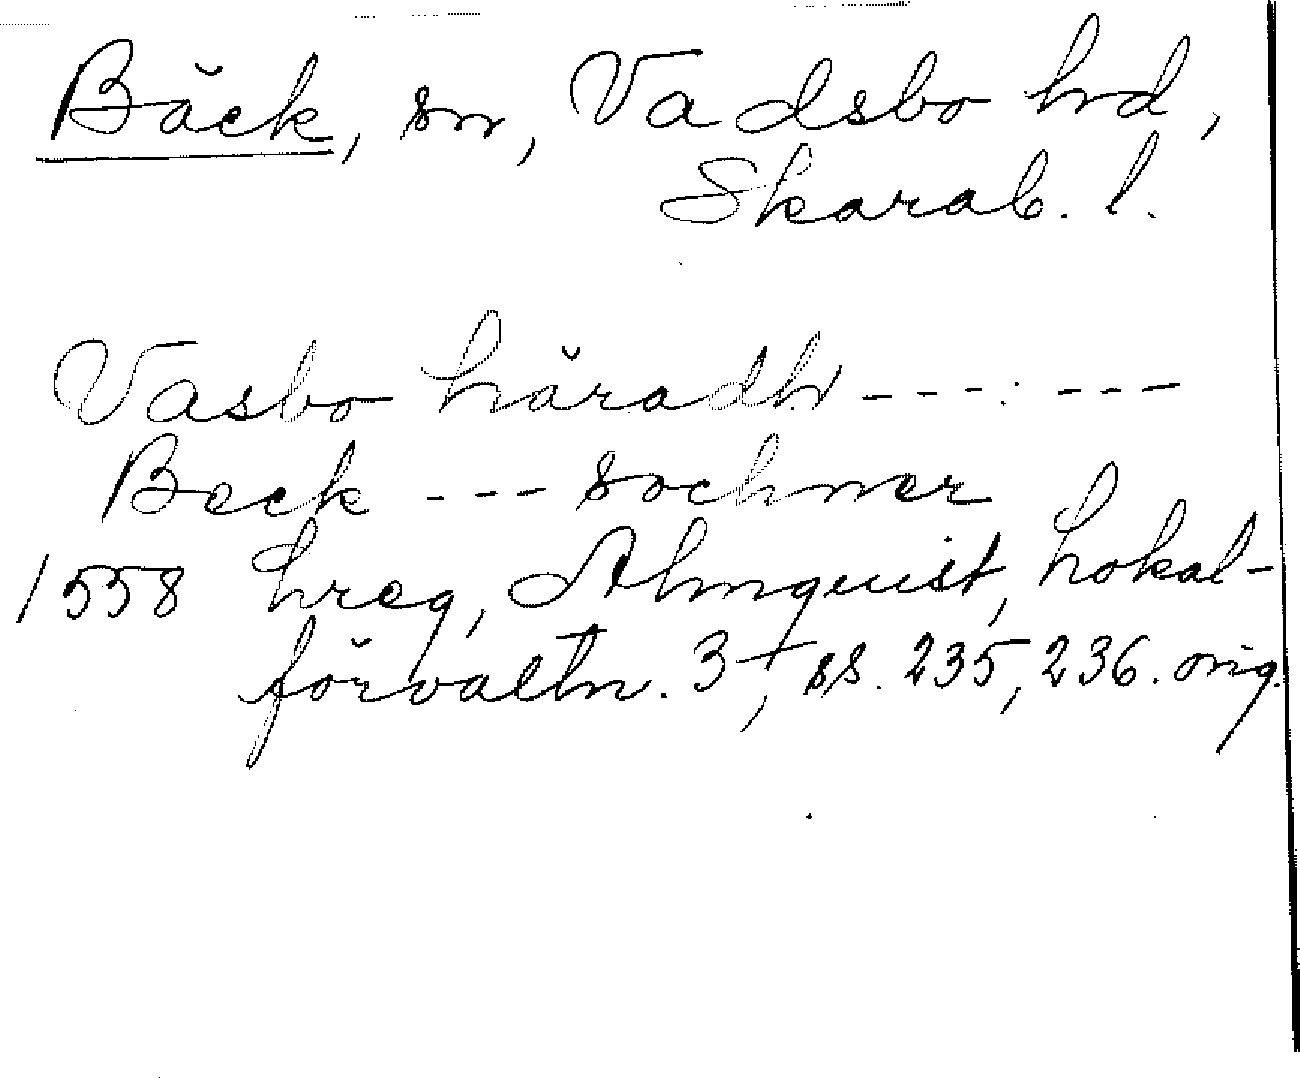 Bäck, sn, Vadsbo hd,
Skarab. l.
Vasbo häradh --- ---
Beck --- sochner
1558 hreg, Almquist, Lokal-
förvaltn. 3, ss. 235, 236. orig.